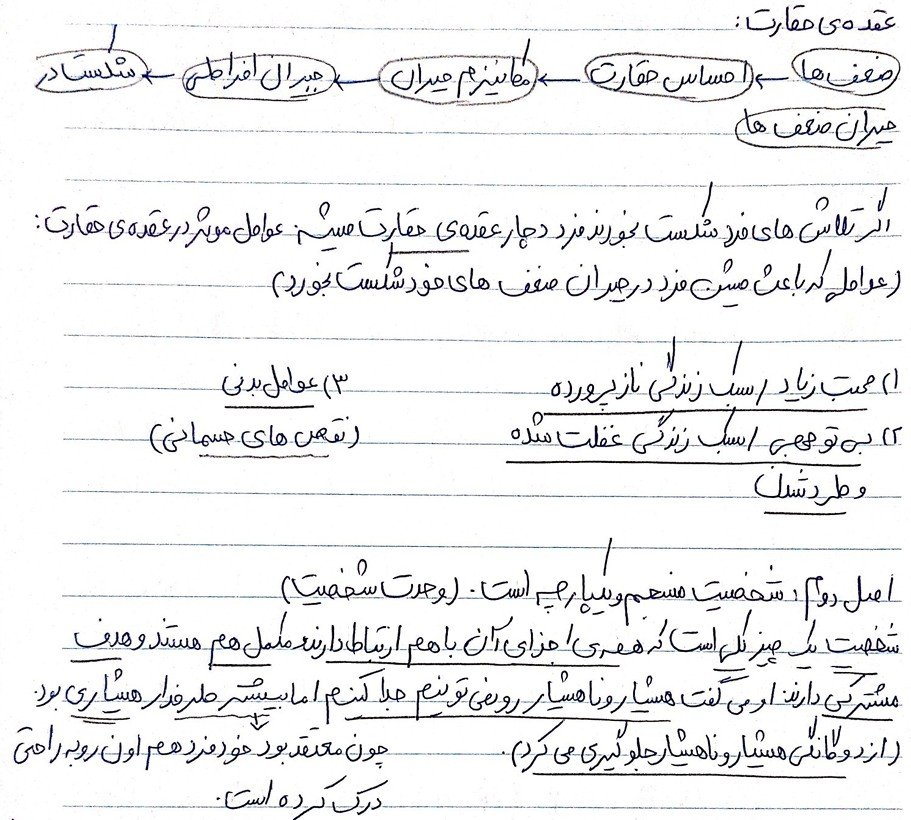 عقده‌ی حقارت:
ضعف‌ها ← احساس حقارت ← مکانیزم جبران ← جبران افراطی ← شکست در
جبران ضعف ها
اگر تلاش های فرد شکست بخورند فرد دچار عقده‌ی حقارت میشه. عوامل موثر در عقده‌ی حقارت:
(عواملی که باعث میشن فرد در جبران ضعف های خود شکست بخورد)
۱) محبت زیاد / سبک زندگی نازپرورده
۳) عوامل بدنی
۲) بی توجهی / سبک زندگی غفلت شده
(نقص های جسمانی)
و طرد شدن
اصل دوم: شخصیت منسجم و یکپارچه است. (وحدت شخصیت)
شخصیت یک چیز کلی است که همه‌ی اجزای آن با هم ارتباط دارند، مکمل هم هستند و هدف
مشترکی دارند. او می گفت هشیار و ناهشیار رو نمی تونیم جدا کنیم اما بیشتر طرفدار هشیاری بود.
(از دوگانگی هشیار و ناهشیار جلوگیری می کرد).
چون معتقد بود خود فرد هم اون رو به راحتی
درک کرده است.